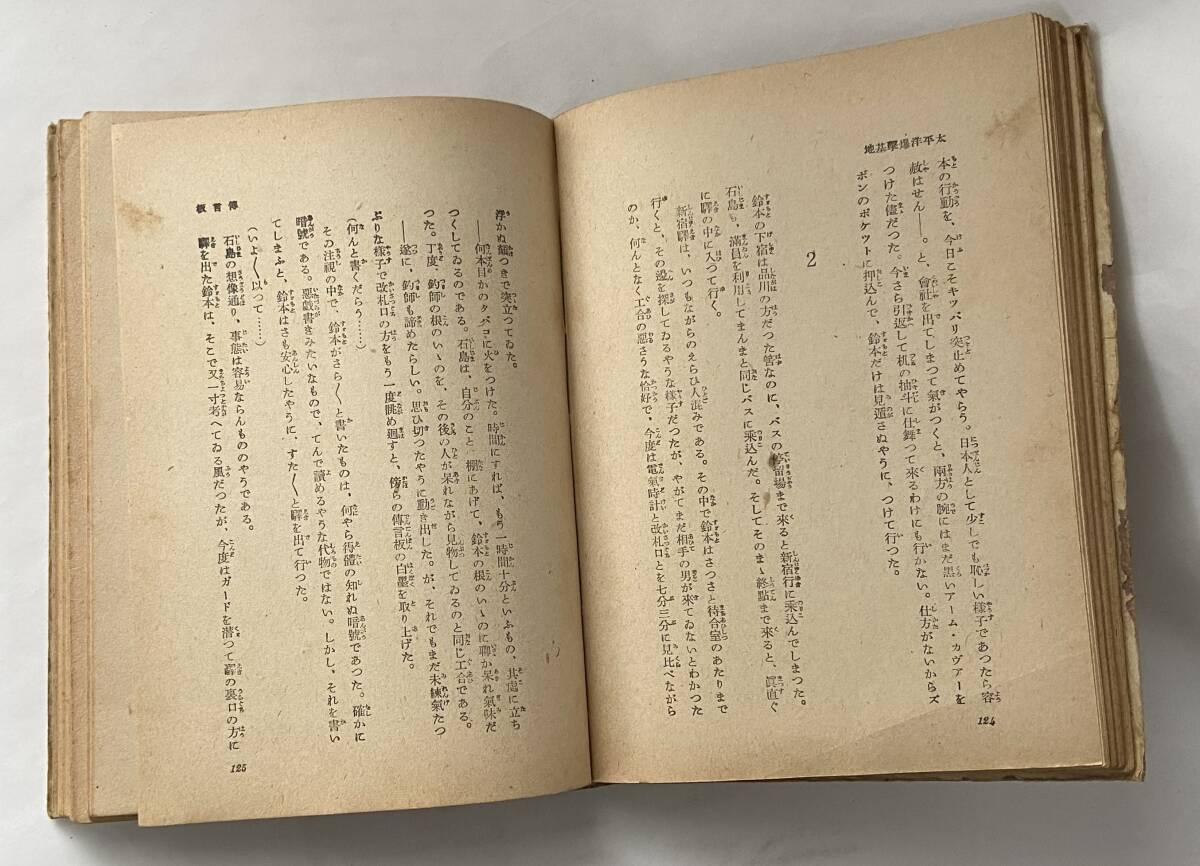 地基擊爆洋平太
本の行動を、今日こそキツパリ突止めてやらう。日本人として少しでも恥しい様子であつたら容
赦はせん――。と、會社を出てしまつて氣がつくと、兩方の腕にはまだ黑いアーム・カヴアーを
つけた儘だつた。今さら引返して机の抽斗に仕舞つて來るわけにも行かない。仕方がないからズ
ボンのポケツトに押込んで、鈴本だけは見遁さぬやうに、つけて行つた。
2
鈴本の下宿は品川の方だつた筈なのに、バスの停留場まで來ると新宿行に乘込んでしまつた。
石島も、滿員を利用してまんまと同じバスに乘込んだ。そしてそのまゝ終點まで來ると、眞直ぐ
に驛の中に入つて行く。
新宿驛は、いつもながらのえらひ人混みである。その中で鈴本はさつさと待合室のあたりまで
行くと、その邊を探してゐるやうな樣子だつたが、やがてまだ相手の男が來てゐないとわかつた
のか、何んとなく工合の惡さうな恰好で、今度は電氣時計と改札口とを七分三分に見比べながら
124
浮かぬ顏つきで突立つてゐた。
――何本目かのタバコに火をつけた。時間にすれば、もう一時間十分といふもの、其處に立ち
つくしてゐるのである。石島は、自分のこと棚にあげて、鈴本の根のいゝのに聊か呆れ氣味だ
つた。丁度、釣師の根のいゝのを、その後の人が呆れながら見物してゐるのと同じ工合である。
――遂に、釣師も諦めたらしい。思ひ切つたやうに動き出した。が、それでもまだ未練氣たつ
ぷりな樣子で改札口の方をもう一度眺め廻すと、傍らの傳言板の白墨を取り上げた。
(何んと書くだらう……)
その注視の中で、鈴本がさら〳〵と書いたものは、何やら得體の知れぬ暗號であつた。確かに
暗號である。惡戲書きみたいなもので、てんで讀めるやうな代物ではない。しかし、それを書い
てしまふと、鈴本はさも安心したやうに、すた〳〵と驛を出て行つた。
(いよ〳〵以つて……)
石島の想像通り、事態は容易ならんもののやうである。
驛を出た鈴本は、そこで又一寸考へてゐる風だつたが、今度はガードを潜つて驛の裏口の方に
板言傳
125